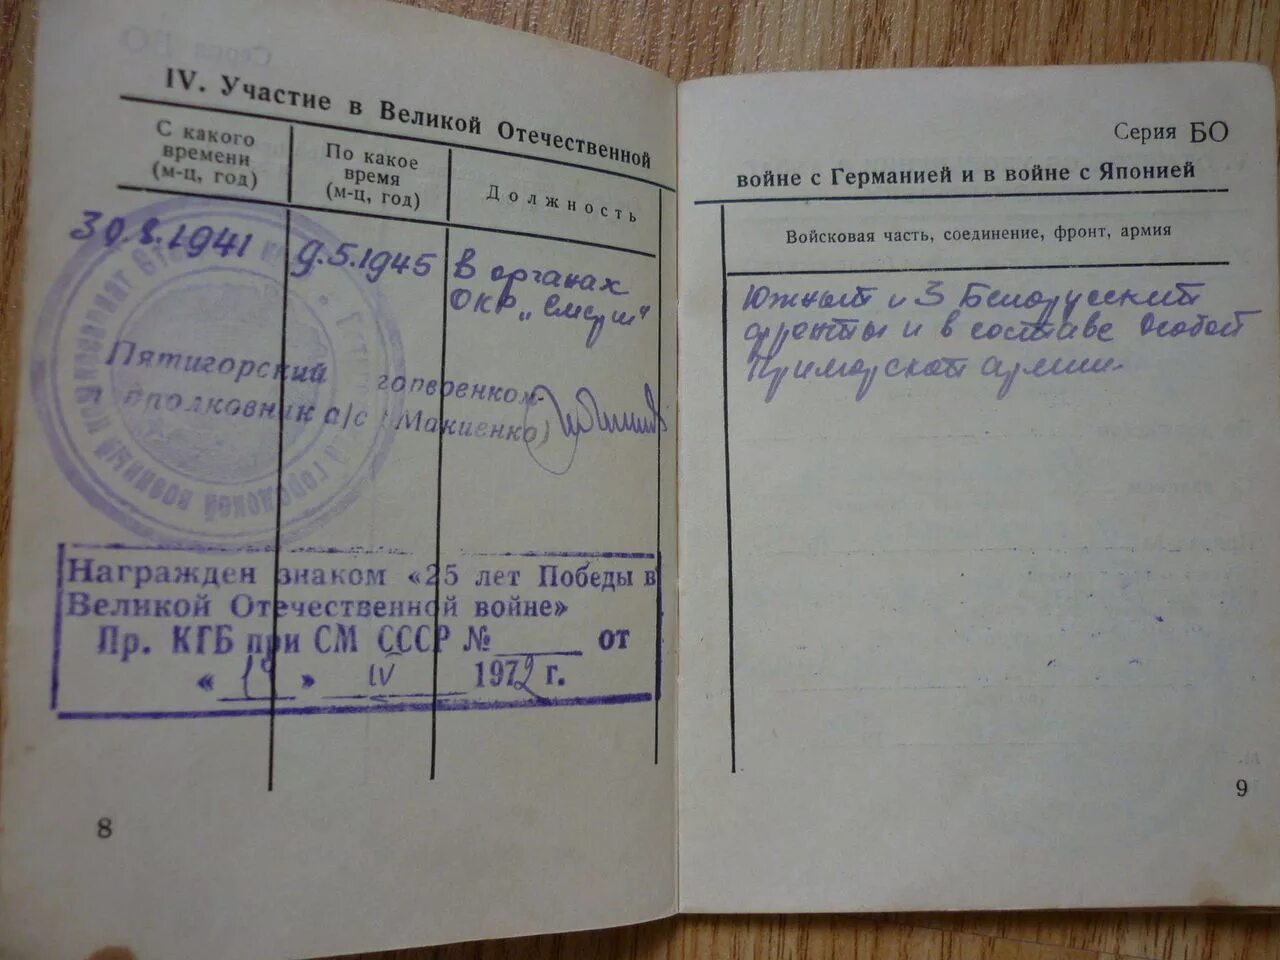 IV. Участие в Великой Отечественной
С какого
времени
(м-ц, год)
По какое
время
(м-ц, год)
Должность
30.8.1941
9.5.1945
в органах
ОКР „Смерш"
Пятигорский горвоенком
полковник а/с (Макиенко)
Награжден знаком «25 лет Победы в
Великой Отечественной войне»
Пр. КГБ при СМ СССР № от
«19» IV 1972 г.
8
Серия БО
войне с Германией и в войне с Японией
Войсковая часть, соединение, фронт, армия
Южный и 3 Белорусский
фронты и в составе Особой
Приморской армии.
9